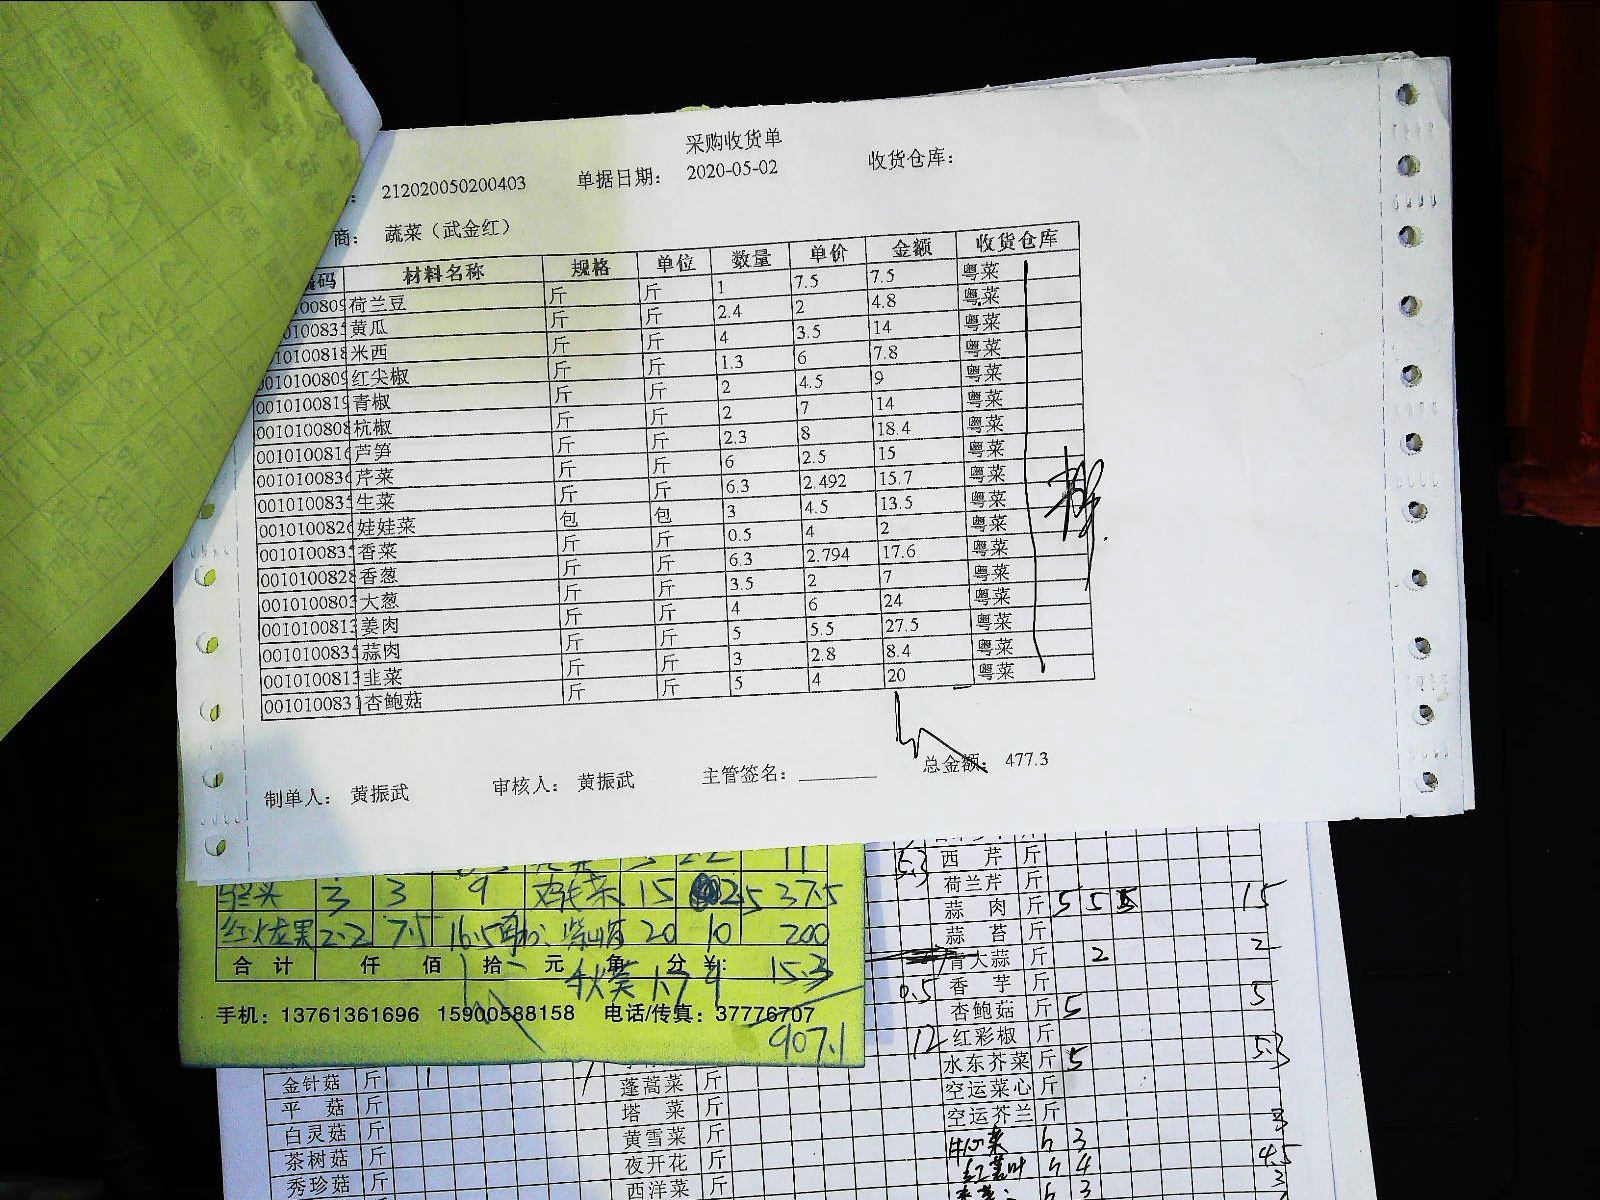 采购收货单
212020050200403 单据日期： 2020-05-02 收货仓库：
商： 蔬菜（武金红）
编码 材料名称 规格 单位 数量 单价 金额 收货仓库
00809 荷兰豆 斤 斤 1 7.5 7.5 粤菜
0100835 黄瓜 斤 斤 2.4 2 4.8 粤菜
10100818 米西 斤 斤 4 3.5 14 粤菜
0010100809 红尖椒 斤 斤 1.3 6 7.8 粤菜
0010100819 青椒 斤 斤 2 4.5 9 粤菜
0010100808 杭椒 斤 斤 2 7 14 粤菜
0010100816 芦笋 斤 斤 2.3 8 18.4 粤菜
0010100836 芹菜 斤 斤 6 2.5 15 粤菜
0010100835 生菜 斤 斤 6.3 2.492 15.7 粤菜
0010100826 娃娃菜 包 包 3 4.5 13.5 粤菜
0010100835 香菜 斤 斤 0.5 4 2 粤菜
0010100828 香葱 斤 斤 6.3 2.794 17.6 粤菜
0010100803 大葱 斤 斤 3.5 2 7 粤菜
0010100813 姜肉 斤 斤 4 6 24 粤菜
0010100835 蒜肉 斤 斤 5 5.5 27.5 粤菜
0010100813 韭菜 斤 斤 3 2.8 8.4 粤菜
001010083 杏鲍菇 斤 斤 5 4 20 粤菜
制单人： 黄振武 审核人： 黄振武 主管签名： 总金额： 477.3
11
3 3 9 鸡毛菜 15 2.5 37.5
红火龙果 2.2 7.5 16.5 20 10 200
合计 仟 佰 拾 元 角 分 ¥: 15.3
1.7 9
手机：13761361696 15900588158 电话/传真：37776707
907.1
5.3 西芹 斤
荷兰芹 斤
蒜肉 斤 5 5 5 15
蒜苔 斤
青大蒜 斤 2 2
0.5 香芋 斤
杏鲍菇 斤 5 5
12 红彩椒 斤
水东芥菜 斤 5 5.3
空运菜心 斤
空运芥兰 斤
3 3
4 4.5
3 3
金针菇 斤 1 1
平菇 斤
白灵菇 斤
茶树菇 斤
秀珍菇 斤
蓬蒿菜 斤
塔菜 斤
黄雪菜 斤
夜开花 斤
西洋菜 斤